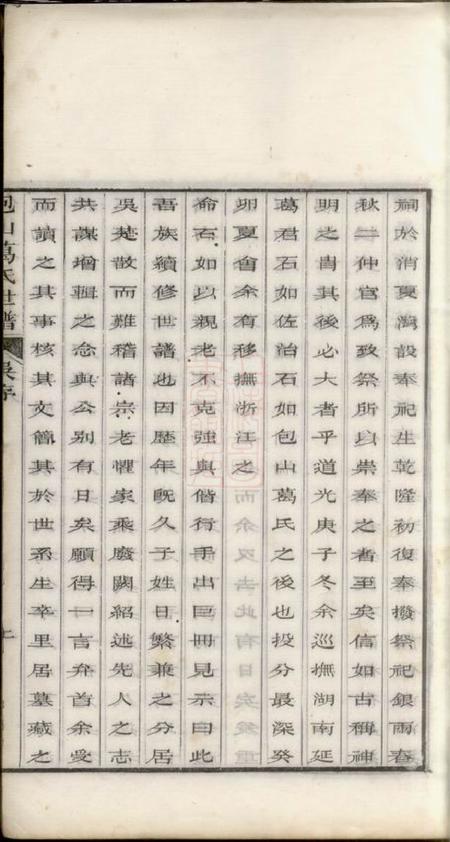 祠於消夏灣設奉祀生乾隆初復奉撥祭祀銀兩春
秋二仲官為致祭所以崇奉之者至矣信如古稱神
明之胄其後必大者乎道光庚子冬余巡撫湖南延
葛君石如佐治石如包山葛氏之後也投分最深癸
卯夏會余有移撫浙江之
命石如以親老不克強與偕行手出巨冊見示曰此
吾族續修世譜也因歷年既久子姓日繁兼之分居
吳楚散而難稽諸宗老懼家乘廢闕紹述先人之志
共謀增輯之念與公別有日矣願得一言弁首余受
而讀之其事核其文簡其於世系生卒里居墓藏之
包山葛氏世譜 吳序 上